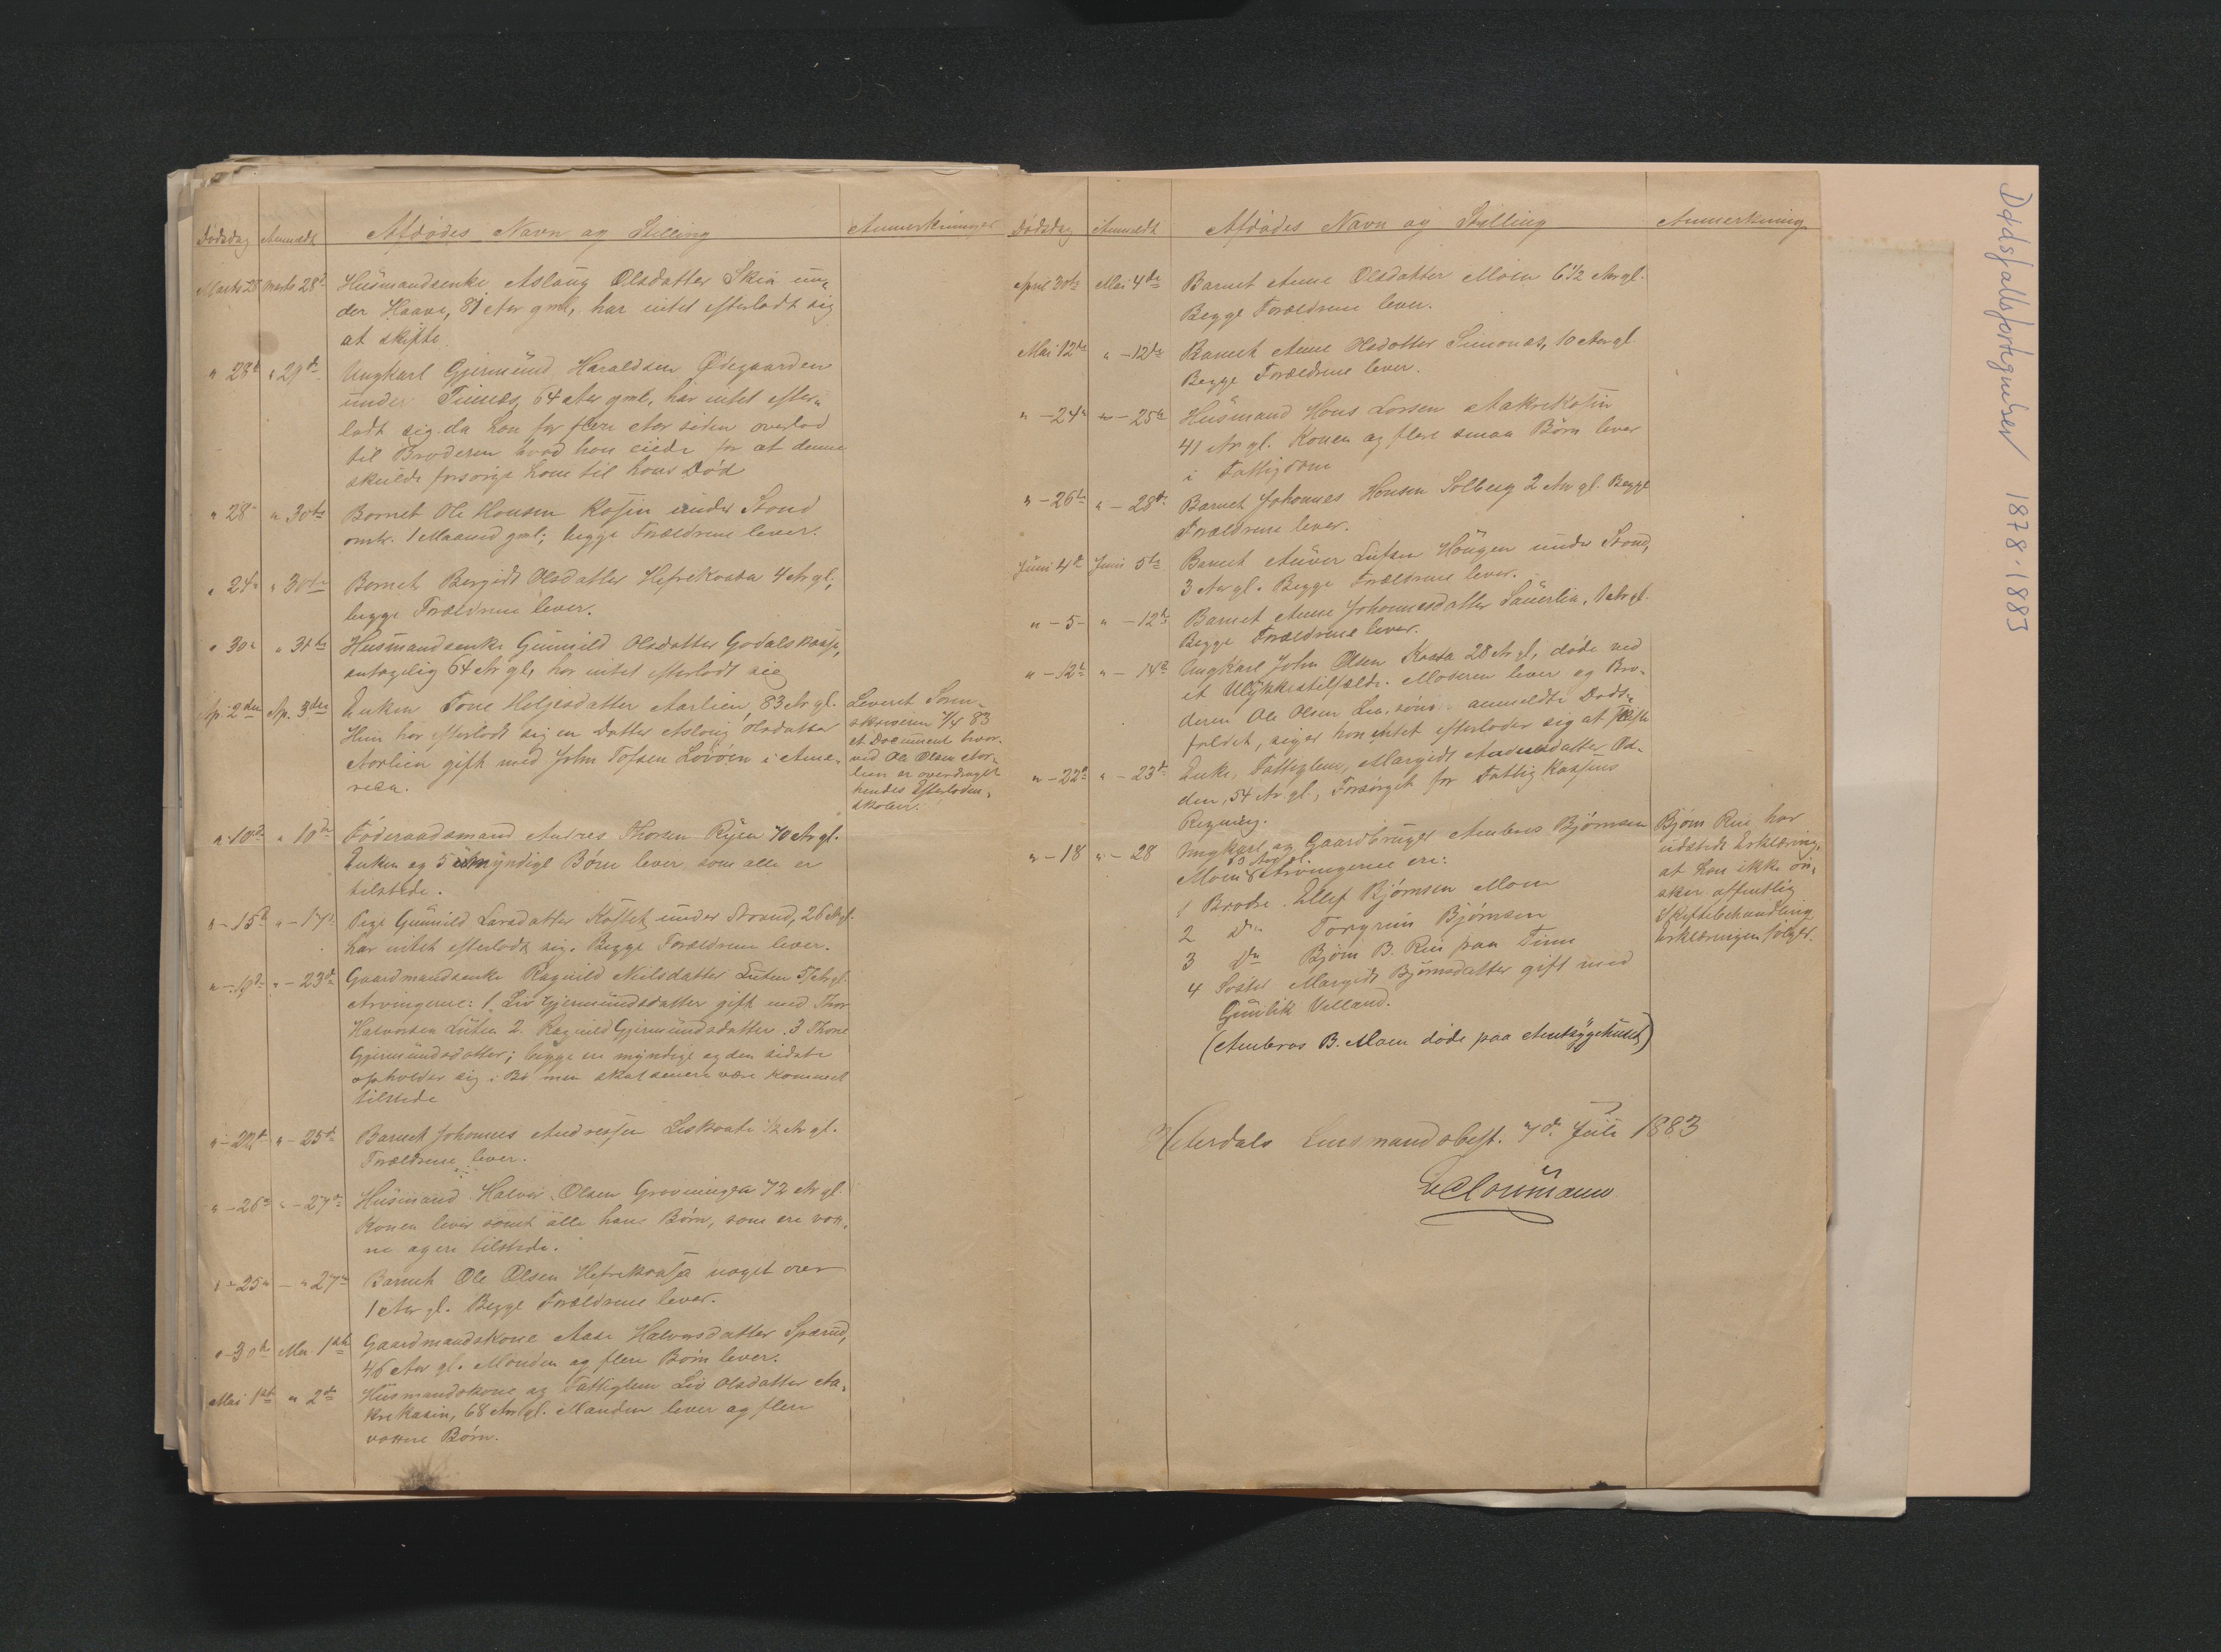 Dødsdag Anmeldt Afdødes Navn og Stilling Anmerkninger
Marts 28 Marts 28de Husmandsenke Aslaug Olsdatter Skea un-
der Haave, 81 Aar gml, har intet efterladt sig
at skifte
" 28de " 29de Ungkarl Gjermund Haraldsen Ødegaarden
under Tinnes 64 Aar gml, har intet efter-
ladt sig da han for flere Aar siden overlod
til Broderen hvad han eiede for at denne
skulde forsørge ham til hans Død
" 28 " 30te Barnet Ole Hansen Kasin under Strand
omtr. 1 Maaned gml; begge Forældrene lever.
" 24 " 30te Barnet Bergidt Olsdatter Hefrekaasa 4 Ar gl.,
begge Forældrene lever.
" 30 " 31te Husmandsenke Gunnild Olsdatter Godalskaasa,
antagelig 64 Ar gl, har intet efterladt sig
Ap. 2den Ap. 3die Enken Tone Heljesdatter Aarlien, 83 Ar gl.
Hun har efterladt sig en Datter Aslaug Olsdatter
Aarlien gift med John Tofsen Løvøen i Ame-
rica.
Leveret Soren-
skriveren 7/4 83
et Document hvor-
ved Ole Olsen Aar-
lien er overdraget
hendes Efterladen-
skaber.
" 10de " 10de Føderaadsmand Andres Thorsen Ryen 70 Ar gl.
Enken og 5 umyndige Børn lever som alle er
tilstede.
" - 15de " - 17de Pige Gunnild Larsdatter Kaaset under Strand, 26 Ar gl.
har intet efterladt sig. Begge Forældrene lever.
" - 19de " - 23de Gaardmandsenke Ragnild Neilsdatter Luten 57 Ar gl.
Arvingerne: 1. Liv Gjermundsdatter gift med Thor
Halvorsen Luten 2. Ragnild Gjermundsdatter. 3 Thone
Gjermundsdatter; begge ere myndige og den sidste
opholder sig i Bø men skal senere være kommet
tilstede
" - 22de " - 25de Barnet Johannes Andressen Liskaate 1/2 Ar gl.
Forældrene lever.
" - 26de " - 27de Husmand Halvor Olsen Grovningen 72 Ar gl.
Konen lever samt alle hans Børn, som ere vox-
ne og ere tilstede.
" - 25 " - 27 Barnet Ole Olsen Hefrekaasa noget over
1 Aar gl. Begge Forældrene lever.
" - 30te Mai 1ste Gaardmandskone Aase Halvorsdatter Sperud,
46 Aar gl. Manden og flere Børn lever.
Mai 1ste " 2de Husmandskone og Fattiglem Liv Olsdatter Aa-
krekasin, 68 Ar gl. Manden lever og flere
voxne Børn.
Dødsdag Anmeldt Afdødes Navn og Stilling Anmerkning
April 30te Mai 4de Barnet Anne Olsdatter Moen 6 1/2 Ar gl.
Begge Forældrene lever.
Mai 12te " - 12te Barnet Anne Olsdatter Simones, 10 Ar gl
Begge Forældrene lever.
" - 24 " - 25de Husmand Hans Larsen Aakrekasin
41 Ar gl. Konen og flere smaa Børn lever
i Fattigdom
" - 26de " - 28de Barnet Johannes Hansen Solberg 2 Ar gl. Begge
Forældrene lever.
Juni 4de Juni 5te Barnet Anver Lufsen Haugen under Strand,
3 Ar gl. Begge Forældrene lever.
" - 5 - " - 12te Barnet Anne Johannesdatter Sauerlia, 1 Ar gl.
Begge Forældrene lever.
" - 12te " - 14de Ungkarl John Olsen Kaasa 28 Ar gl, døde ved
et Ulykkestilfælde. Moderen lever og Bro-
deren Ole Olsen Lia, som anmeldte Døds-
faldet, siger han intet efterlader sig at skifte
" - 22de " - 23de Enke, Fattiglem, Margidt Andersdatter
54 Ar gl., Forsørget for Fattig Kassens
Regning.
" - 18 " - 28 Ungkarl og Gaardbruger Ambros Bjørnsen
Moen Arvingerne ere:
1 Broder Ellef Bjørnsen Moen
2 Do Torgrim Bjørnsen
3 Do Bjørn B. Rui paa Tinn
4 Søster Margidt Bjørnsdatter gift med
Gunlik Velland.
(Ambros B. Moen døde paa Amtssygehuset)
Bjørn Rui har
udstedt Erklæring,
at han ikke øn-
sker offentlig
Skiftebehandling
Erklæringen følger.
Hiterdals Lensmandsbest. 7de Juli 1883
Dødsfallsfortegnelser 1878-1883